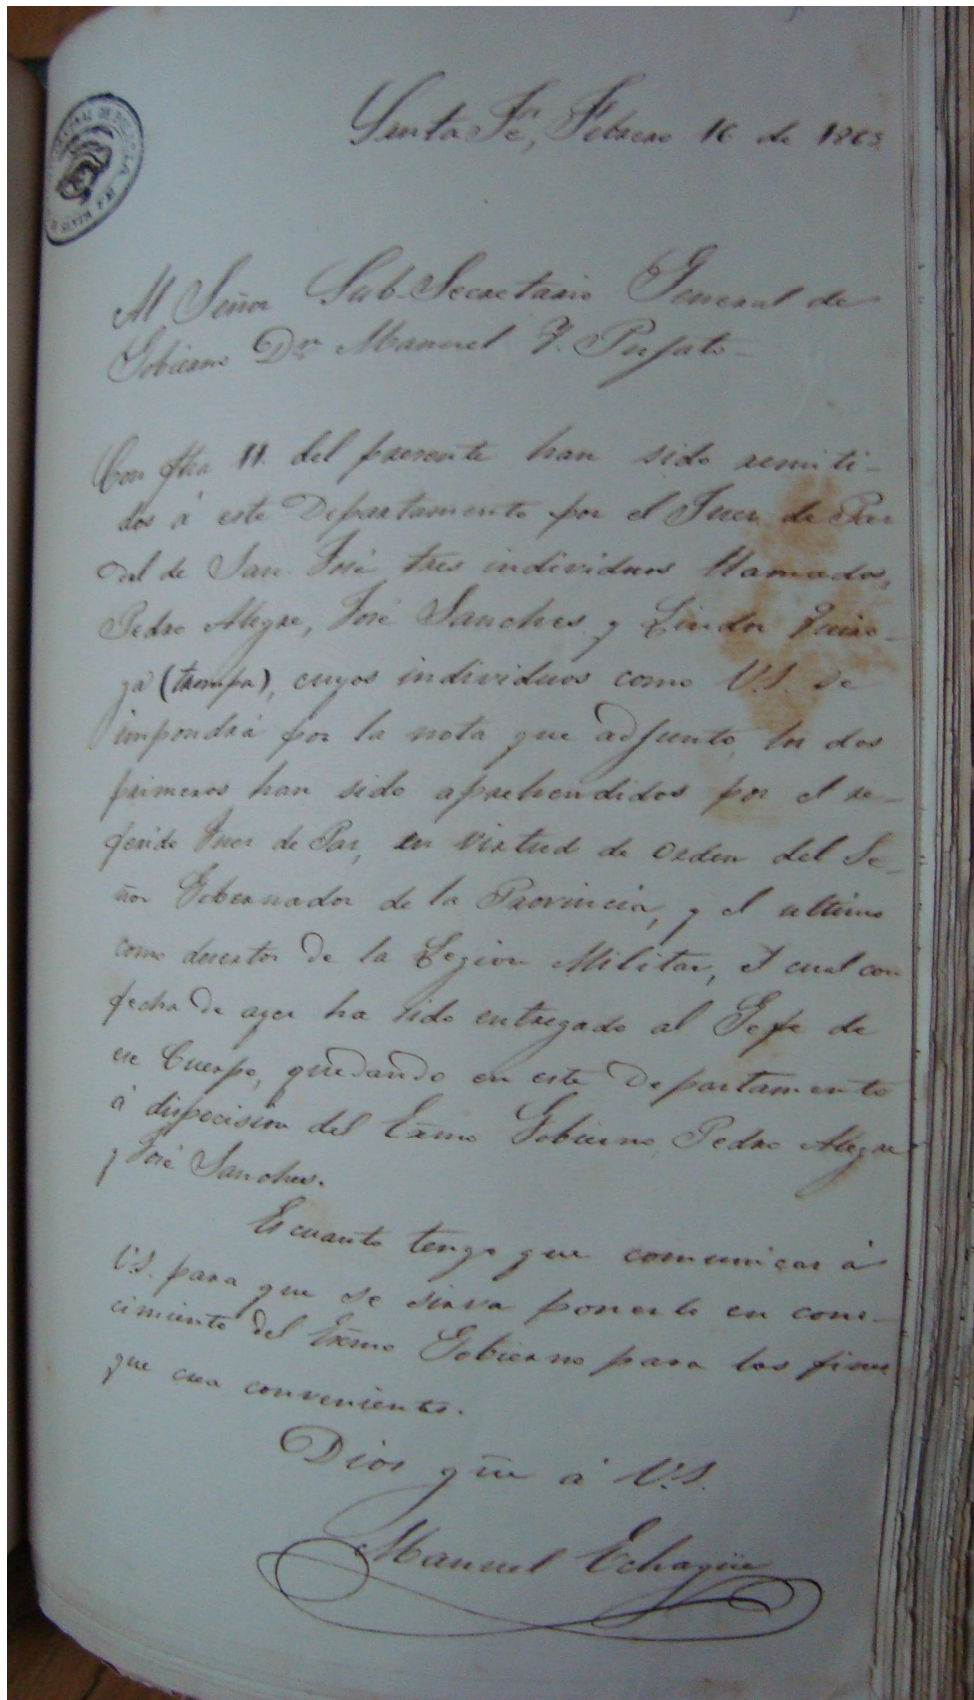 Santa Fe, Febrero 16 de 1865
Al Señor Sub-Secretario General de
Gobierno Dn Manuel Y. Pujato-
Con fha 11. del presente han sido remiti-
dos á este Departamento por el Juez de Paz
del de San José tres individuos llamados,
Pedro Alegre, José Sanches y Lindor Quiro-
ga (trompa), cuyos individuos como V.S. se
impondrá por la nota que adjunto, los dos
primeros han sido aprehendidos por el re-
ferido Juez de Paz, en virtud de orden del Se-
ñor Gobernador de la Provincia, y el ultimo
como desertor de la Legion Militar, el cual con
fecha de ayer ha sido entregado al Gefe de
ese Cuerpo, quedando en este Departamento
á dispocision del Exmo Gobierno, Pedro Alegre
y José Sanches.
Es cuanto tengo que comunicar á
V.S. para que se sirva ponerlo en cono-
cimiento del Exmo Gobierno para los fines
que crea convenientes.
Dios gũe á V.S.
Manuel Echagüe